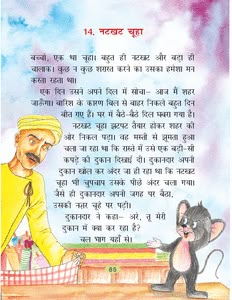 14. नटखट चूहा
बच्चो, एक था चूहा। बहुत ही नटखट और बड़ा ही
चालाक। कुछ न कुछ शरारत करने का उसका हमेशा मन
करता रहता था।
एक दिन उसने अपने दिल में सोचा- आज मैं शहर
जाऊँगा। बारिश के कारण बिल से बाहर निकले बहुत दिन
बीत गए हैं। घर में बैठे-बैठे दिल घबरा गया है।
नटखट चूहा झटपट तैयार होकर शहर की
ओर निकल पड़ा। वह मस्ती से झूमता हुआ
चला जा रहा था कि रास्ते में उसे एक बड़ी-सी
कपड़े की दुकान दिखाई दी। दुकानदार अपनी
दुकान खोल कर अंदर जा ही रहा था कि नटखट
चूहा भी चुपचाप उसके पीछे अंदर चला गया।
जैसे ही दुकानदार अपनी जगह पर बैठा,
उसकी नज़र चूहे पर पड़ी।
दुकानदार ने कहा- अरे, तू मेरी
दुकान में क्या कर रहा है?
चल भाग यहाँ से।
65